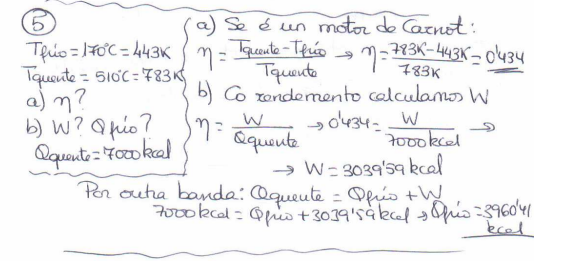 5
Tfrío=170°C=443K
Tquente=510°C=783K
a) η?
b) W? Qfrío?
Qquente=7000kcal
a) Se é un motor de Carnot:
η = Tquente-Tfrío / Tquente → η = 783K-443K / 783K = 0'434
b) Co rendemento calculamos W
η = W / Qquente → 0'434 = W / 7000kcal →
→ W = 3039'59 kcal
Por outra banda: Qquente = Qfrío + W
7000kcal = Qfrío + 3039'59 kcal → Qfrío = 3960'41 kcal